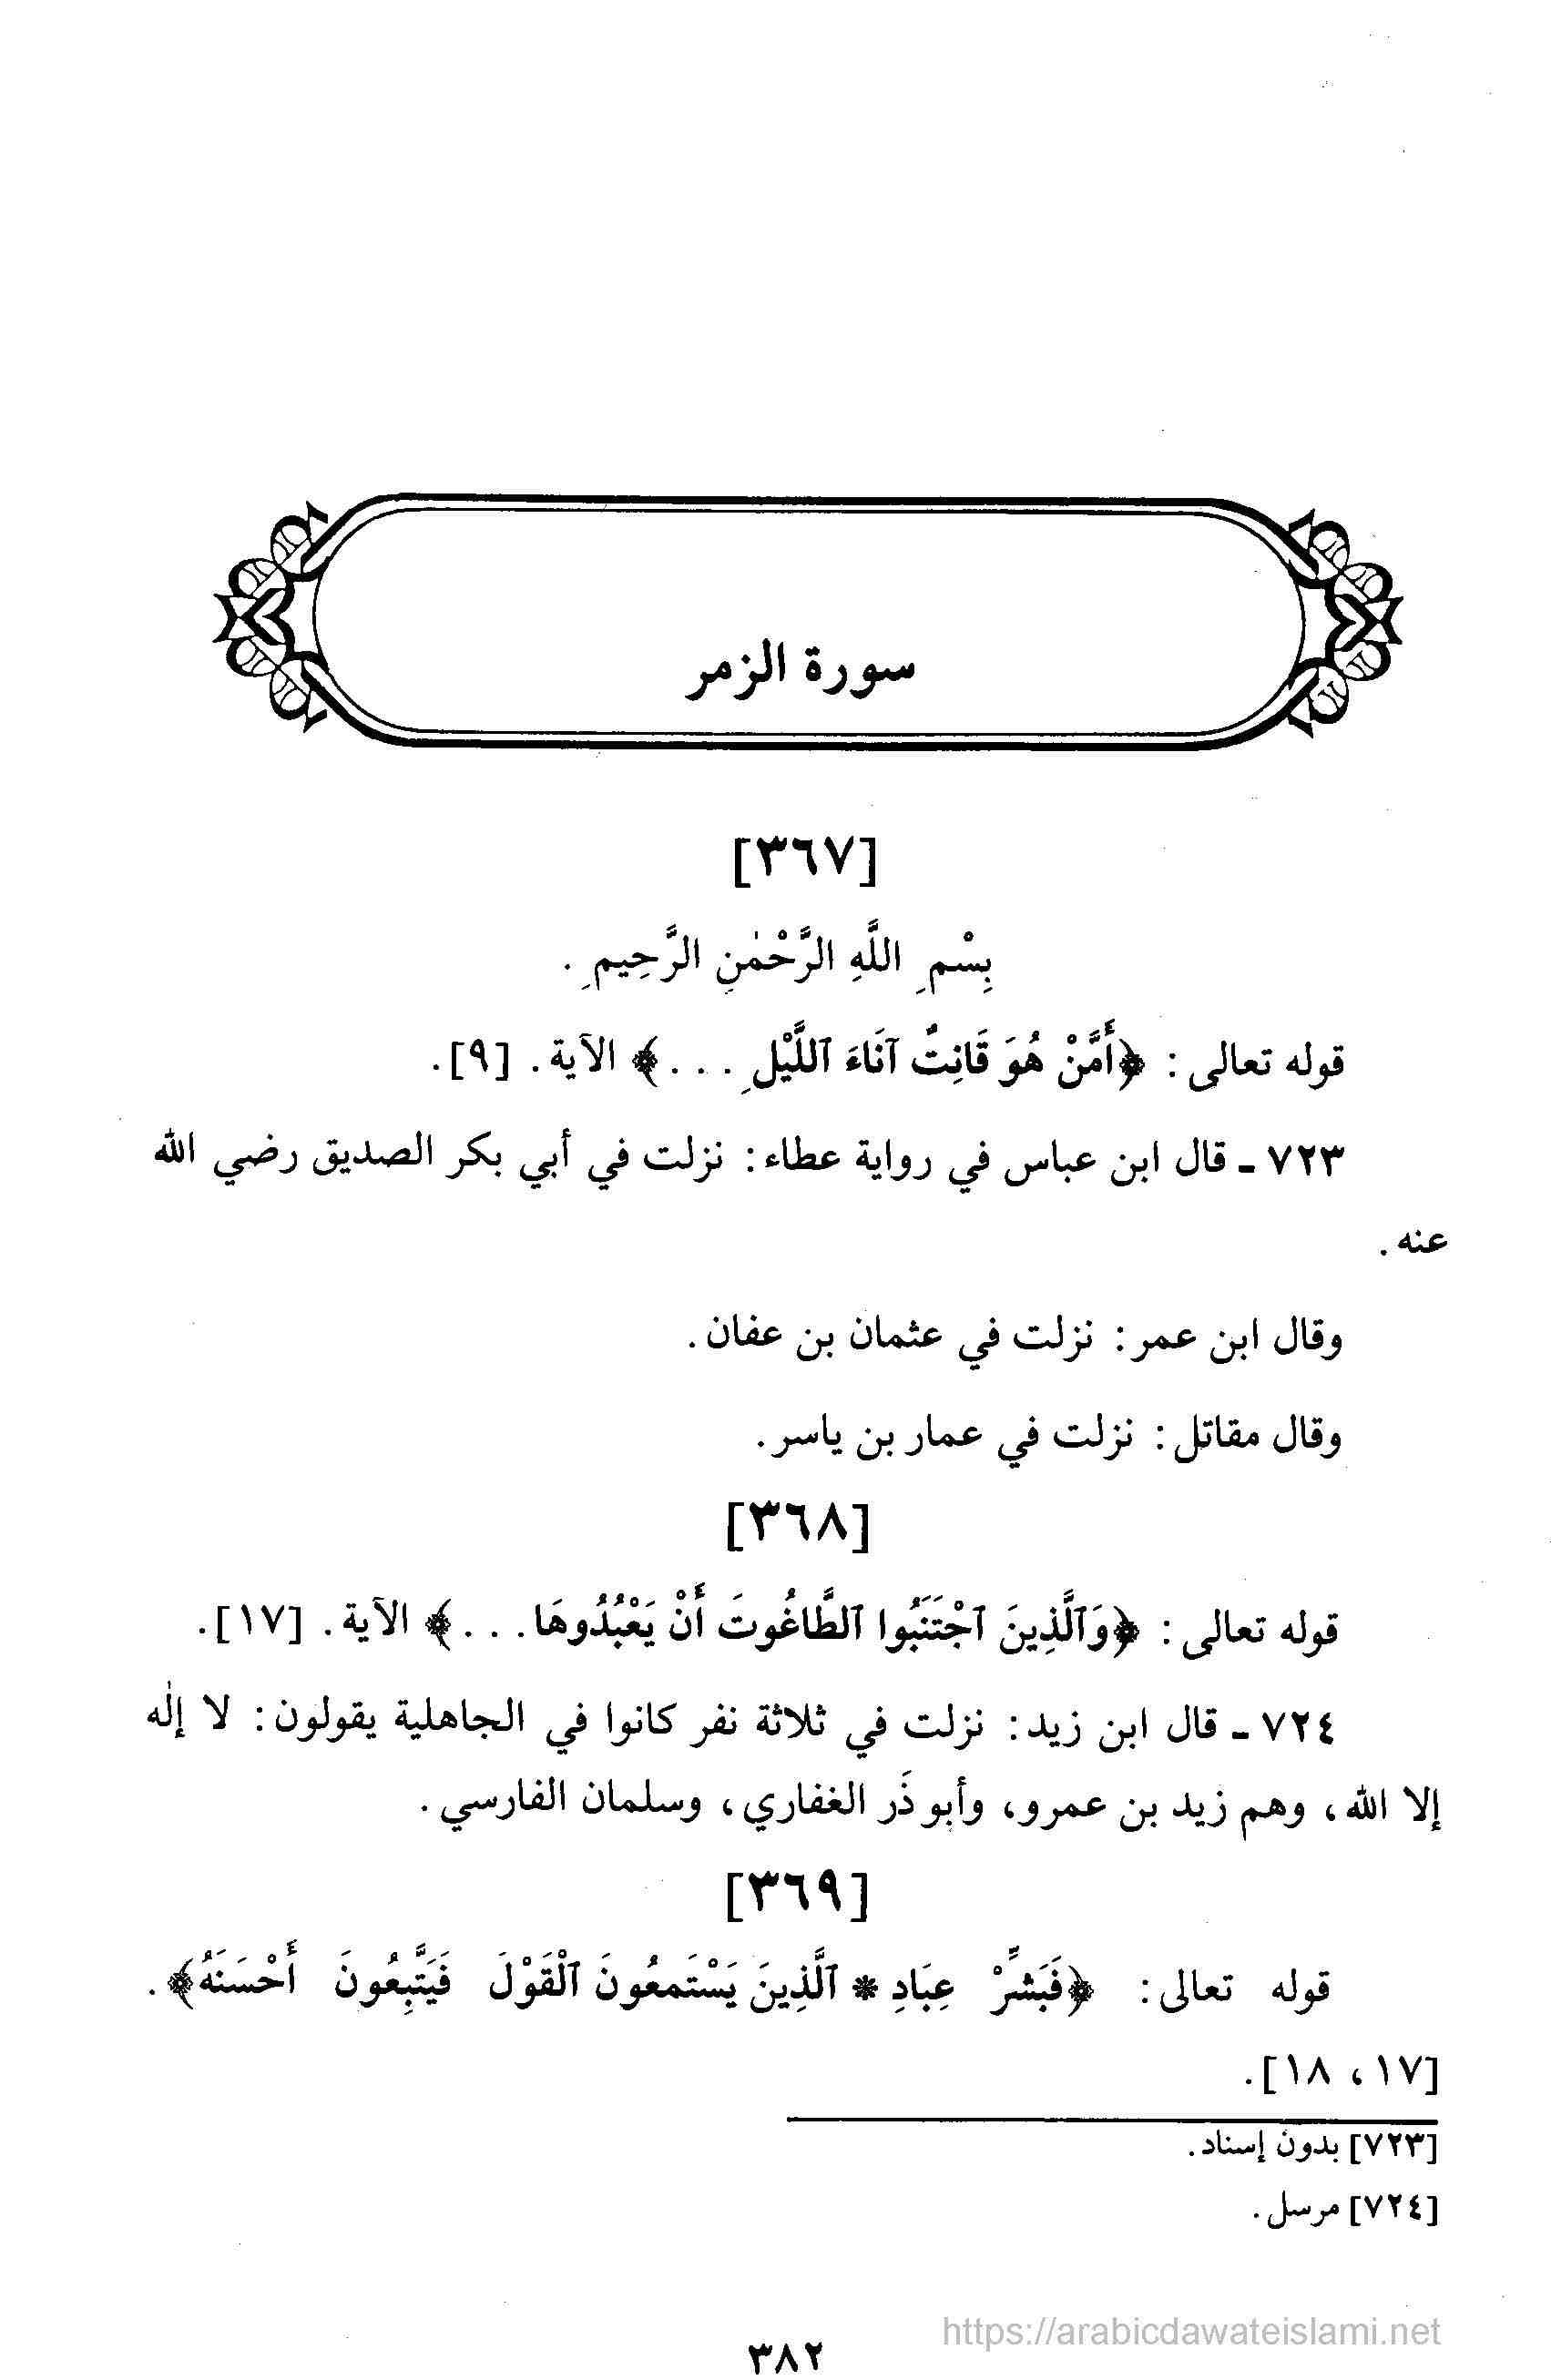 سورة الزمر
[٣٦٧]
بِسْمِ اللَّهِ الرَّحْمٰنِ الرَّحِيمِ .
قوله تعالى : ﴿أَمَّنْ هُوَ قَانِتٌ آنَاءَ ٱللَّيْلِ . . .﴾ الآية . [٩].
٧٢٣ ـ قال ابن عباس في رواية عطاء: نزلت في أبي بكر الصديق رضي الله
عنه .
وقال ابن عمر: نزلت في عثمان بن عفان.
وقال مقاتل: نزلت في عمار بن ياسر.
[٣٦٨]
قوله تعالى : ﴿وَٱلَّذِينَ ٱجْتَنَبُوا ٱلطَّاغُوتَ أَنْ يَعْبُدُوهَا. . .﴾ الآية . [١٧].
٧٢٤ ـ قال ابن زيد: نزلت في ثلاثة نفر كانوا في الجاهلية يقولون: لا إلٰه
إلا الله، وهم زيد بن عمرو، وأبو ذَر الغفاري، وسلمان الفارسي .
[٣٦٩]
قوله تعالى: ﴿فَبَشِّرْ عِبَادِ * ٱلَّذِينَ يَسْتَمعُونَ ٱلْقَوْلَ فَيَتَّبِعُونَ أَحْسَنَهُ﴾.
[١٧، ١٨].
[٧٢٣] بدون إسناد.
[٧٢٤] مرسل.
https://arabicdawateislami.net
٣٨٢